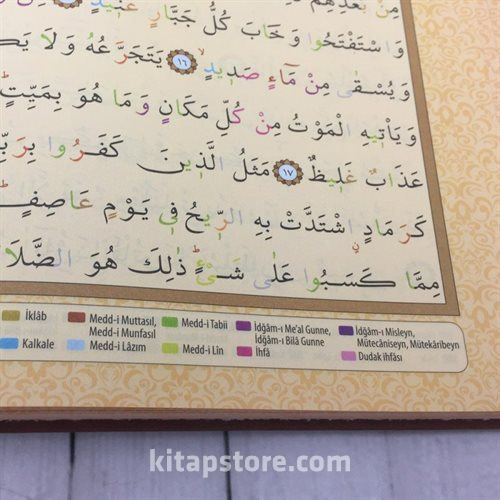 مِنْ بَعْدِهِمْ
وَاسْتَفْتَحُوا وَخَابَ كُلُّ جَبَّارٍ عَنِيدٍ
وَيُسْقٰى مِنْ مَٓاءٍ صَدِيدٍۙ ﴿١٦﴾ يَتَجَرَّعُهُ وَلَا
وَيَأْتِيهِ الْمَوْتُ مِنْ كُلِّ مَكَانٍ وَمَا هُوَ بِمَيِّتٍۜ
عَذَابٌ غَلِيظٌ ﴿١٧﴾ مَثَلُ الَّذِينَ كَفَرُوا
كَرَمَادٍۨ اشْتَدَّتْ بِهِ الرِّيحُ فِي يَوْمٍ عَاصِفٍۜ
مِمَّا كَسَبُوا عَلٰى شَيْءٍۜ ذٰلِكَ هُوَ
İklâb Medd-i Muttasıl, Medd-i Munfasıl Medd-i Tabiî İdğâm-ı Me'al Gunne, İdğâm-ı Bilâ Gunne İdğâm-ı Misleyn, Mütecâniseyn, Mütekâribeyn
Kalkale Medd-i Lâzım Medd-i Lin İhfâ Dudak ihfâsı
kitapstore.com